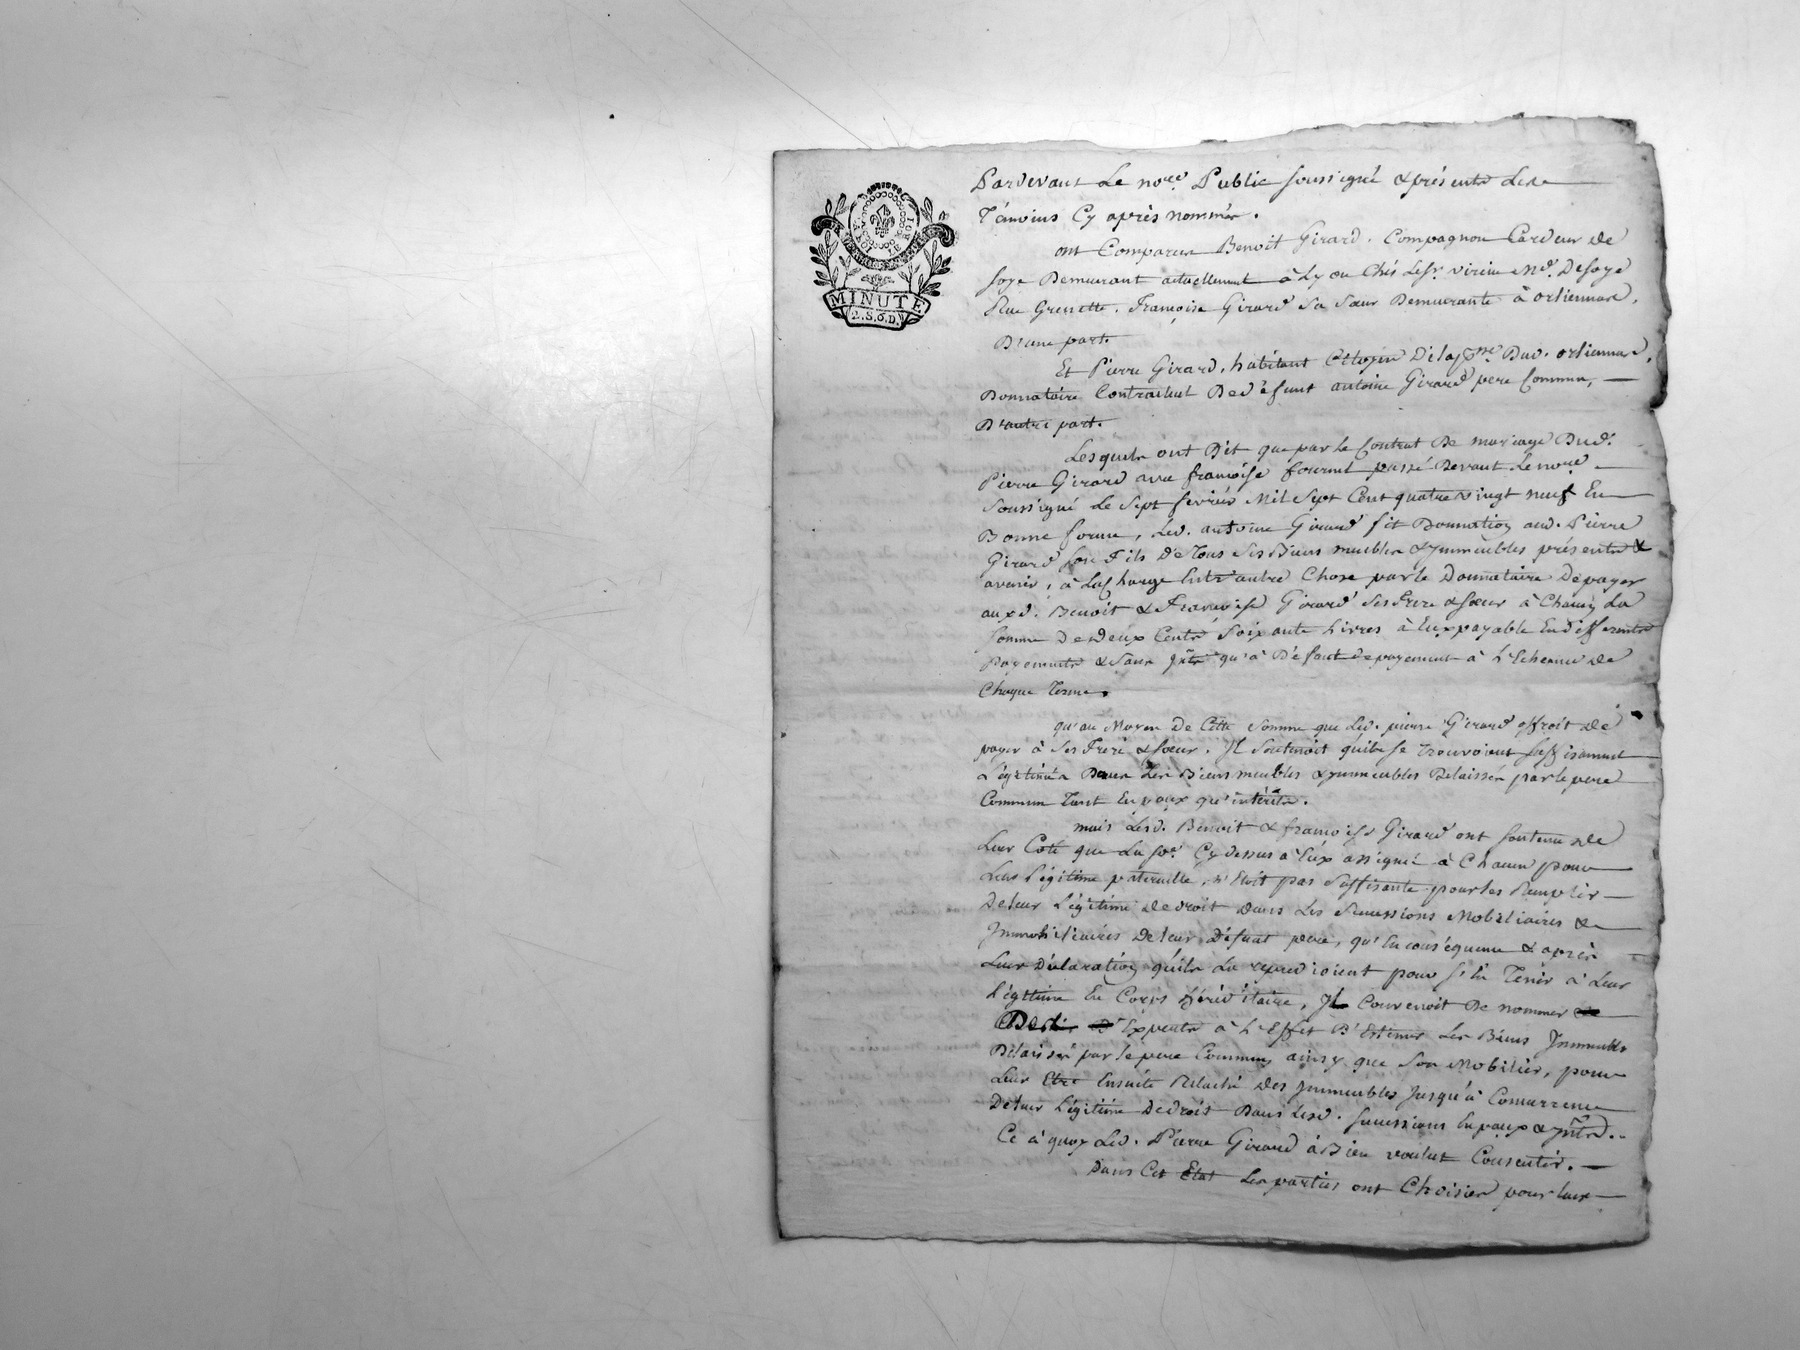 LA LOI LE ROI
MINUTE
2.S.6.D.
Pardevant Le no.re Public soussigné & présents Les
Témoins Cy après nommés.
ont Comparus Benoit Girard, Compagnon Cardeur de
soye Demeurant actuellement à Lyon Chés Le Sr. virieu Md. De soye
Rue Grenette, Françoise Girard Sa Sœur Demeurante à orliennas,
D'une part.
Et Pierre Girard, habitant Citoyen De la Dud. orliennas,
Donnataire Contractuel De déffunt antoine Girard pere Commun,
D'autre part.
Lesquels ont Dit que par le Contrat De mariage Dud.
Pierre Girard avec françoise passé Devant Le no.re
Soussigné Le Sept fevrier Mil Sept Cent quatre vingt neuf En
Bonne forme, Led. antoine Girard fit Donnation aud. Pierre
Girard son Fils De Tous Ses Biens meubles & ymmeubles présents &
avenir, à La Charge Entr'autre Chose par le Donnataire De payer
auxd. Benoit & Françoise Girard Ses Frere & sœur à Chacun La
Somme De Deux Cents Soixante Livres à Eux payable En differents
Payements & Sans jnts qu'à Défaut de payement à L'Echeance de
Chaque Terme.
qu'au Moyen De Cette Somme que Led. pierre Girard offroit de
payer à Ses Frere & sœur, Il Soutenoit qu'ils se Trouvoient suffisament
Légitimés Dans Les Biens meubles & ymmeubles Delaissés par le pere
Commun Tant En fonds qu'intérêts.
mais Lesd. Benoit & françoise Girard ont soutenu de
Leur Coté que La So.e Cy dessus à Eux assigné à Chacun pour
Leur Légitime paternelle, n'Etoit pas Suffisante pour les Remplir
De leur Légitime de droit dans Les Sucessions Mobiliaires &
Jmmobiliaires De leur Défunt pere, qu'En conséquence & après
Leur Déclaration qu'ils La repudioient pour s'En Tenir à Leur
Légitime En Corps Héréditaire, Jl Convenoit De nommer
D'Experts à L'Effet D'Estimer Les Biens Jmmeubles
Délaissés par le pere Commun ainsy que Son Mobilier, pour
Leur Etre Ensuite Relaché Des jmmeubles Jusqu'à Concurrence
De leur Légitime De droit Dans Lesd. sucessions En fonds & jnts.
Ce à quoy Led. Pierre Girard à Bien voulut Consentir.
Dans Cet Etat Les parties ont Choisies pour leur